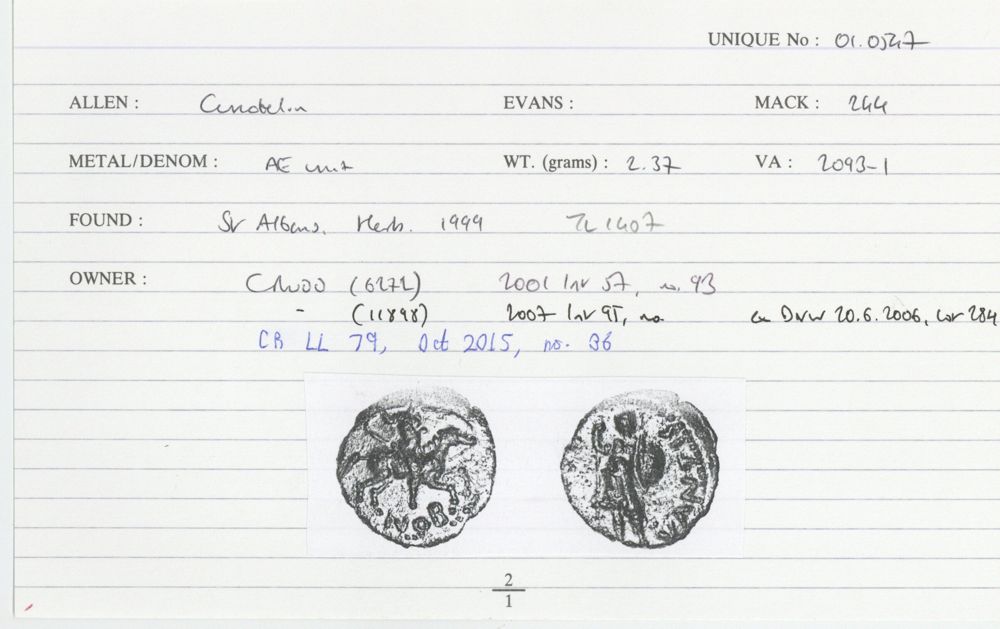 UNIQUE No : 01.0547
ALLEN : Cunobelin EVANS : MACK : 244
METAL/DENOM : AE unit WT. (grams) : 2.37 VA : 2093-1
FOUND : St Albans, Herts. 1999 TL 1407
OWNER : (6272) 2001 no. 93
- (11898) 2007 no ex DNW 20.6.2006, lot 284
CR LL 79, Oct 2015, no. 36
2
1